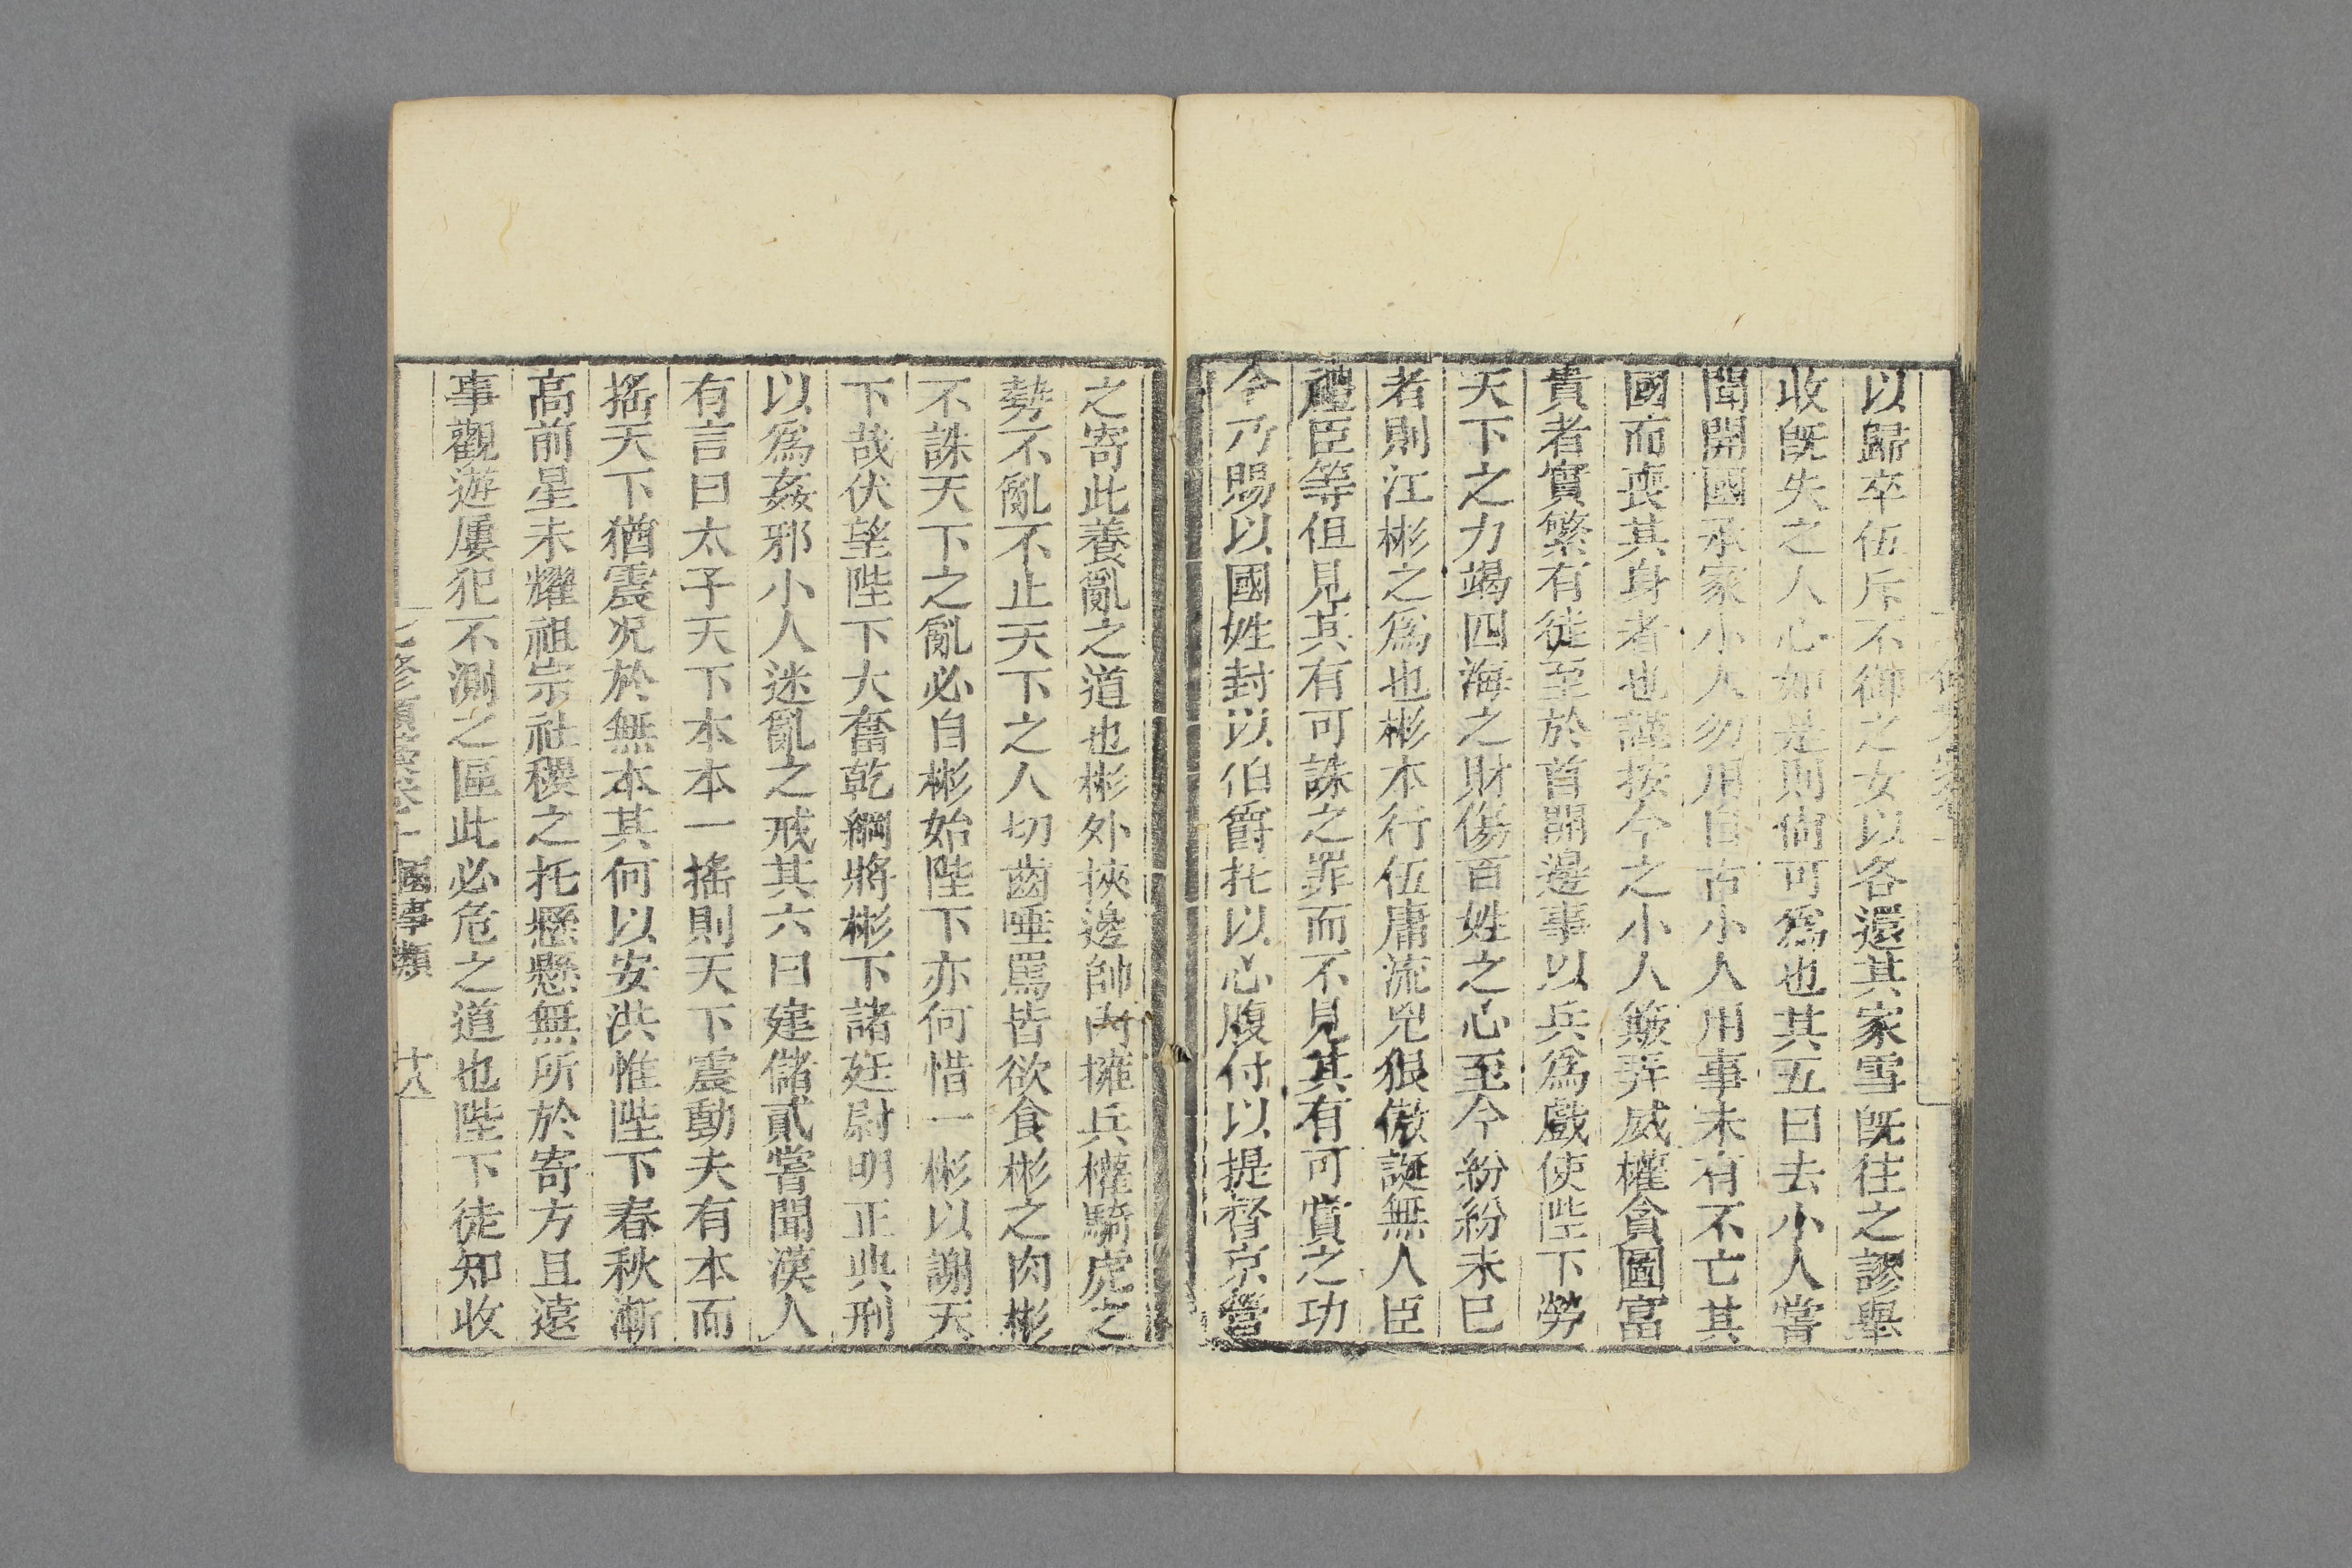 以歸卒伍斥不御之女以各還其家雪既往之謬舉
收既失之人心如是則尙可爲也其五曰去小人嘗
聞開國承家小人勿用自古小人用事未有不亡其
國而喪其身者也謹按今之小人簸弄威權貪圖富
貴者實繁有徒至於首開邊事以兵爲戲使陛下勞
天下之力竭四海之財傷百姓之心至今紛紛未已
者則江彬之爲也彬本行伍庸流兇狠傲誕無人臣
禮臣等但見其有可誅之罪而不見其有可賞之功
今乃賜以國姓封以伯爵托以心腹付以提督京營
之寄此養亂之道也彬外挾邊帥內擁兵權騎虎之
勢不亂不止天下之人切齒唾罵皆欲食彬之肉彬
不誅天下之亂必自彬始陛下亦何惜一彬以謝天
下哉伏望陛下大奮乾綱將彬下諸廷尉明正典刑
以爲姦邪小人迷亂之戒其六曰建儲貳嘗聞漢人
有言曰太子天下本本一搖則天下震動夫有本而
搖天下猶震况於無本其何以安洪惟陛下春秋漸
高前星未耀祖宗社稷之托懸懸無所於寄方且遠
事觀遊屢犯不測之區此必危之道也陛下徒知收
七修類藁卷十 國事類 十八